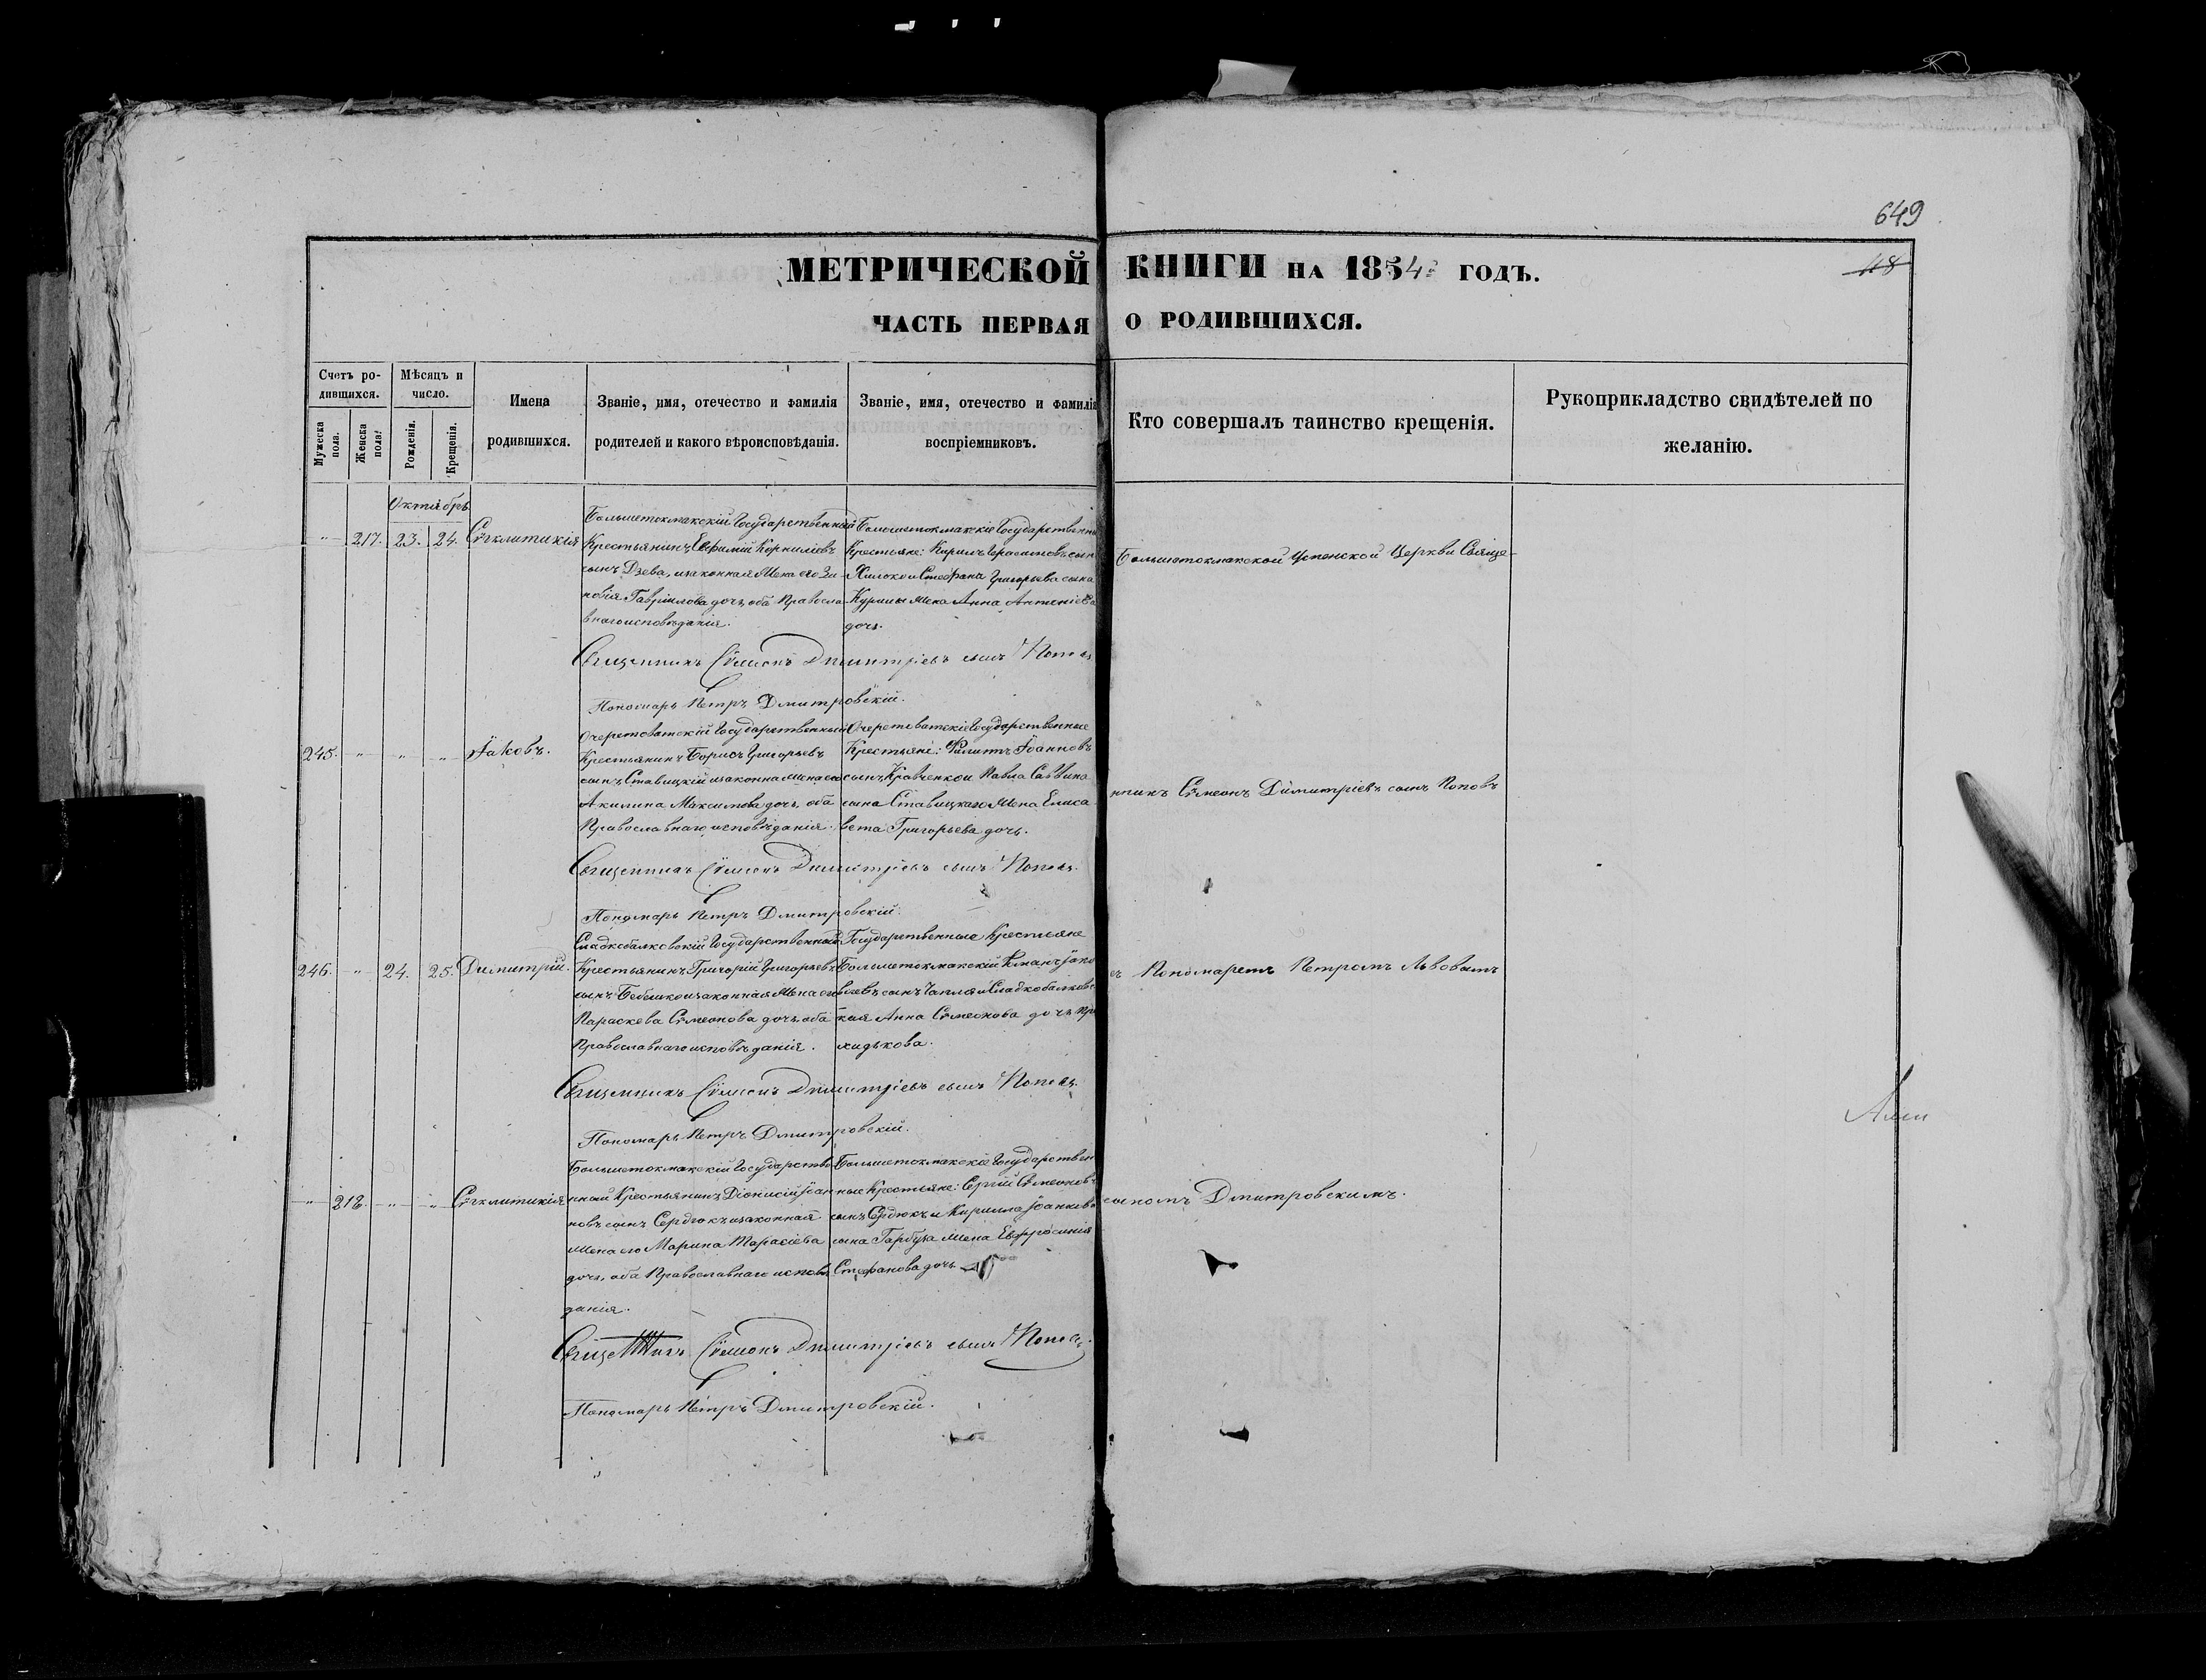 649
118
МЕТРИЧЕСКОЙ КНИГИ НА 1854 ГОДЪ.
ЧАСТЬ ПЕРВАЯ О РОДИВШИХСЯ.
Счетъ родившихся.
Мужеска пола.
Женска пола.
Мѣсяцъ и число.
Рожденія.
Крещенія.
Имена
родившихся.
Званіе, имя, отечество и фамилія
родителей и какого вѣроисповѣданія.
Званіе, имя, отечество и фамилія
воспріемниковъ.
Кто совершалъ таинство крещенія.
Рукоприкладство свидѣтелей по
желанію.
Октябрь
" 217. 23. 24. Сѵгклитикія
Большетокмакскій Государственный
Крестьянинъ Евфимій Корниліевъ
сынъ Дзева, и законная Жена его Зи-
новія Гавріилова дочь, оба Правосла-
внаго исповѣданія.
Большетокмакскіе Государственны
Крестьяне: Кирилъ сын
и Стефана Григорьева сына
жена Анна Антоніева
дочь.
Священникъ Сѵмеонъ Димитріевъ сынъ Поповъ
Пономарь Петръ Дмитровскій.
245. " " " Іаковъ.
Очеретоватскій Государственный
Крестьянинъ Борисъ Григорьевъ
сынъ Ставицкій и законна Жена его
Акилина Максимова дочь, оба
Православнаго исповѣданія.
Очеретоватскіе Государственные
Крестьяне: Филиппъ Іоанновъ
сынъ Кравченко и Павла Саввина
сына Ставицкаго Жена Елиса
вета Григорьева дочь.
Священникъ Сѵмеонъ Димитріевъ сынъ Поповъ.
Пономарь Петръ Дмитровскій.
246. " 24. 25. Димитрій.
Сладкобалковскій Государственный
Крестьянинъ Григорій Григорьевъ
сынъ Бебешко и законная Жена его
Параскева Сѵмеонова дочь, оба
Православнаго исповѣданія.
Государственные Крестьяне
Большетокмакскій Іако
влевъ сынъ Чапля и Сладкобалковс
кая Анна Сѵмеонова дочь Про
хидькова.
Священникъ Сѵмеонъ Димитріевъ сынъ Поповъ.
Пономарь Петръ Дмитровскій.
" 218. " " Сѵгклитикія
Большетокмакскій Государстве
нный Крестьянинъ Діонисій Іоан
новъ сынъ Сердюкъ и законная
Жена его Марина Тарасіева
дочь, оба Православнаго исповѣ
данія.
Большетокмакскіе Государствен
ные Крестьяне: Сергій Сѵмеоновъ
сынъ Сердюкъ и Кирилла Іоаннова
сына Гарбуза Жена Евфросинія
Стефанова дочь
Священникъ Сѵмеонъ Димитріевъ сынъ Поповъ.
Пономарь Петръ Дмитровскій.
Большетокмакской Успенской Церкви Свяще-
нникъ Сѵмеонъ Димитріевъ сынъ Поповъ
съ Пономаремъ Петромъ Львовымъ
сыномъ Дмитровскимъ.